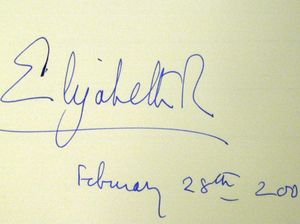 Elizabeth R
February 28th 200